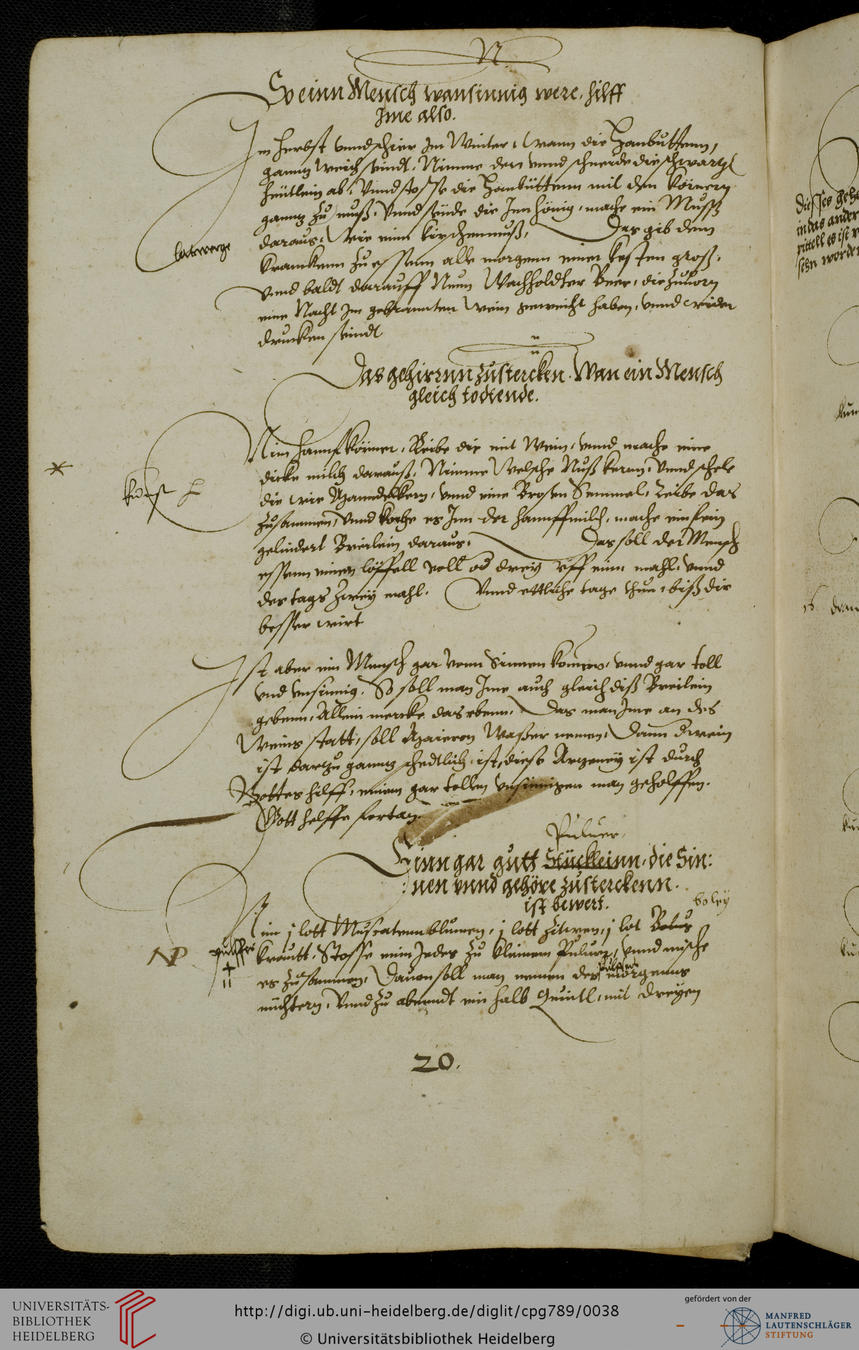 N.
So einn Mensch wansinnig were, hilff
Ime also.
Im herbst vnnd schier Im Winter, wann die Hanbuttenn,
ganntz weich seindt, Nimme den vnnd schneide die schwartze
heutlein ab, Vnnd stosse die Hanbüttenn mit den körnern
ganntz zu muß, Vnnd seude die Inn hönig, mache ein Muß
daraus, wie ein kirschenmuß, Das gib dem
latwerge
Krancken zu essenn alle morgenn einer kesten groß,
Vnnd baldt darauff Neun Wachholdter Beer, die zuuorn
eine Nacht Im gebranntenn Wein geweicht haben, vnnd wider
drucken seindt
Das gehirnn zustercken. Wan ein Mensch
gleich todtende.
Nim hannfkörner, Reibe die mit Wein, vnnd mache eine
dicke milch darauß, Nimme Welsche Nuß kernn, vnnd schele
die wie Manndelkern, vnnd eine Brosen Semmel, Reibe das
zusammen, vnnd koche es Inn der hannffmilch, mache ein fein
gelindert Breilein daraus, Das soll der Mensch
essenn einen löffell voll od dreyg vff einn mahl, vnnd
des tags zwey mahl. Vnnd ettliche tage thun, biß die
besser wirt
Ist aber ein Mensch gar vonn Sinnen komen, vnnd gar toll
vnd vnsinnig, So soll man Ime auch gleich diß Breilein
gebenn, Allein mercke das ebenn, Das man Ime an des
Weins statt, soll Maieron Waßer nemen, Dann d wein
ist darzu ganntz schedtlich, ist, diese Artzeney ist durch
Gottes hilff, einem gar tollen vnsinnigen man geholffen.
Gott helffe fortan.
Puluer,
Einn gar gutt Stückleinn, die Sin:
:nen vnnd gehöre zusterckenn.
ist bewert.
Nim j lott Muscatennblumen, j lott Zitwen, j lot
NP
kreutt, Stosse ein Jedes zu kleinem Puluer, vnnd mische
es zusammen, Dauon soll man nemen des morgenns
nüchtern, Vnnd zu abenndt ein halb Quintl, mit dreyen
20.
UNIVERSITÄTS-
BIBLIOTHEK
HEIDELBERG
http://digi.ub.uni-heidelberg.de/diglit/cpg789/0038
© Universitätsbibliothek Heidelberg
gefördert von der
MANFRED
LAUTENSCHLÄGER
STIFTUNG